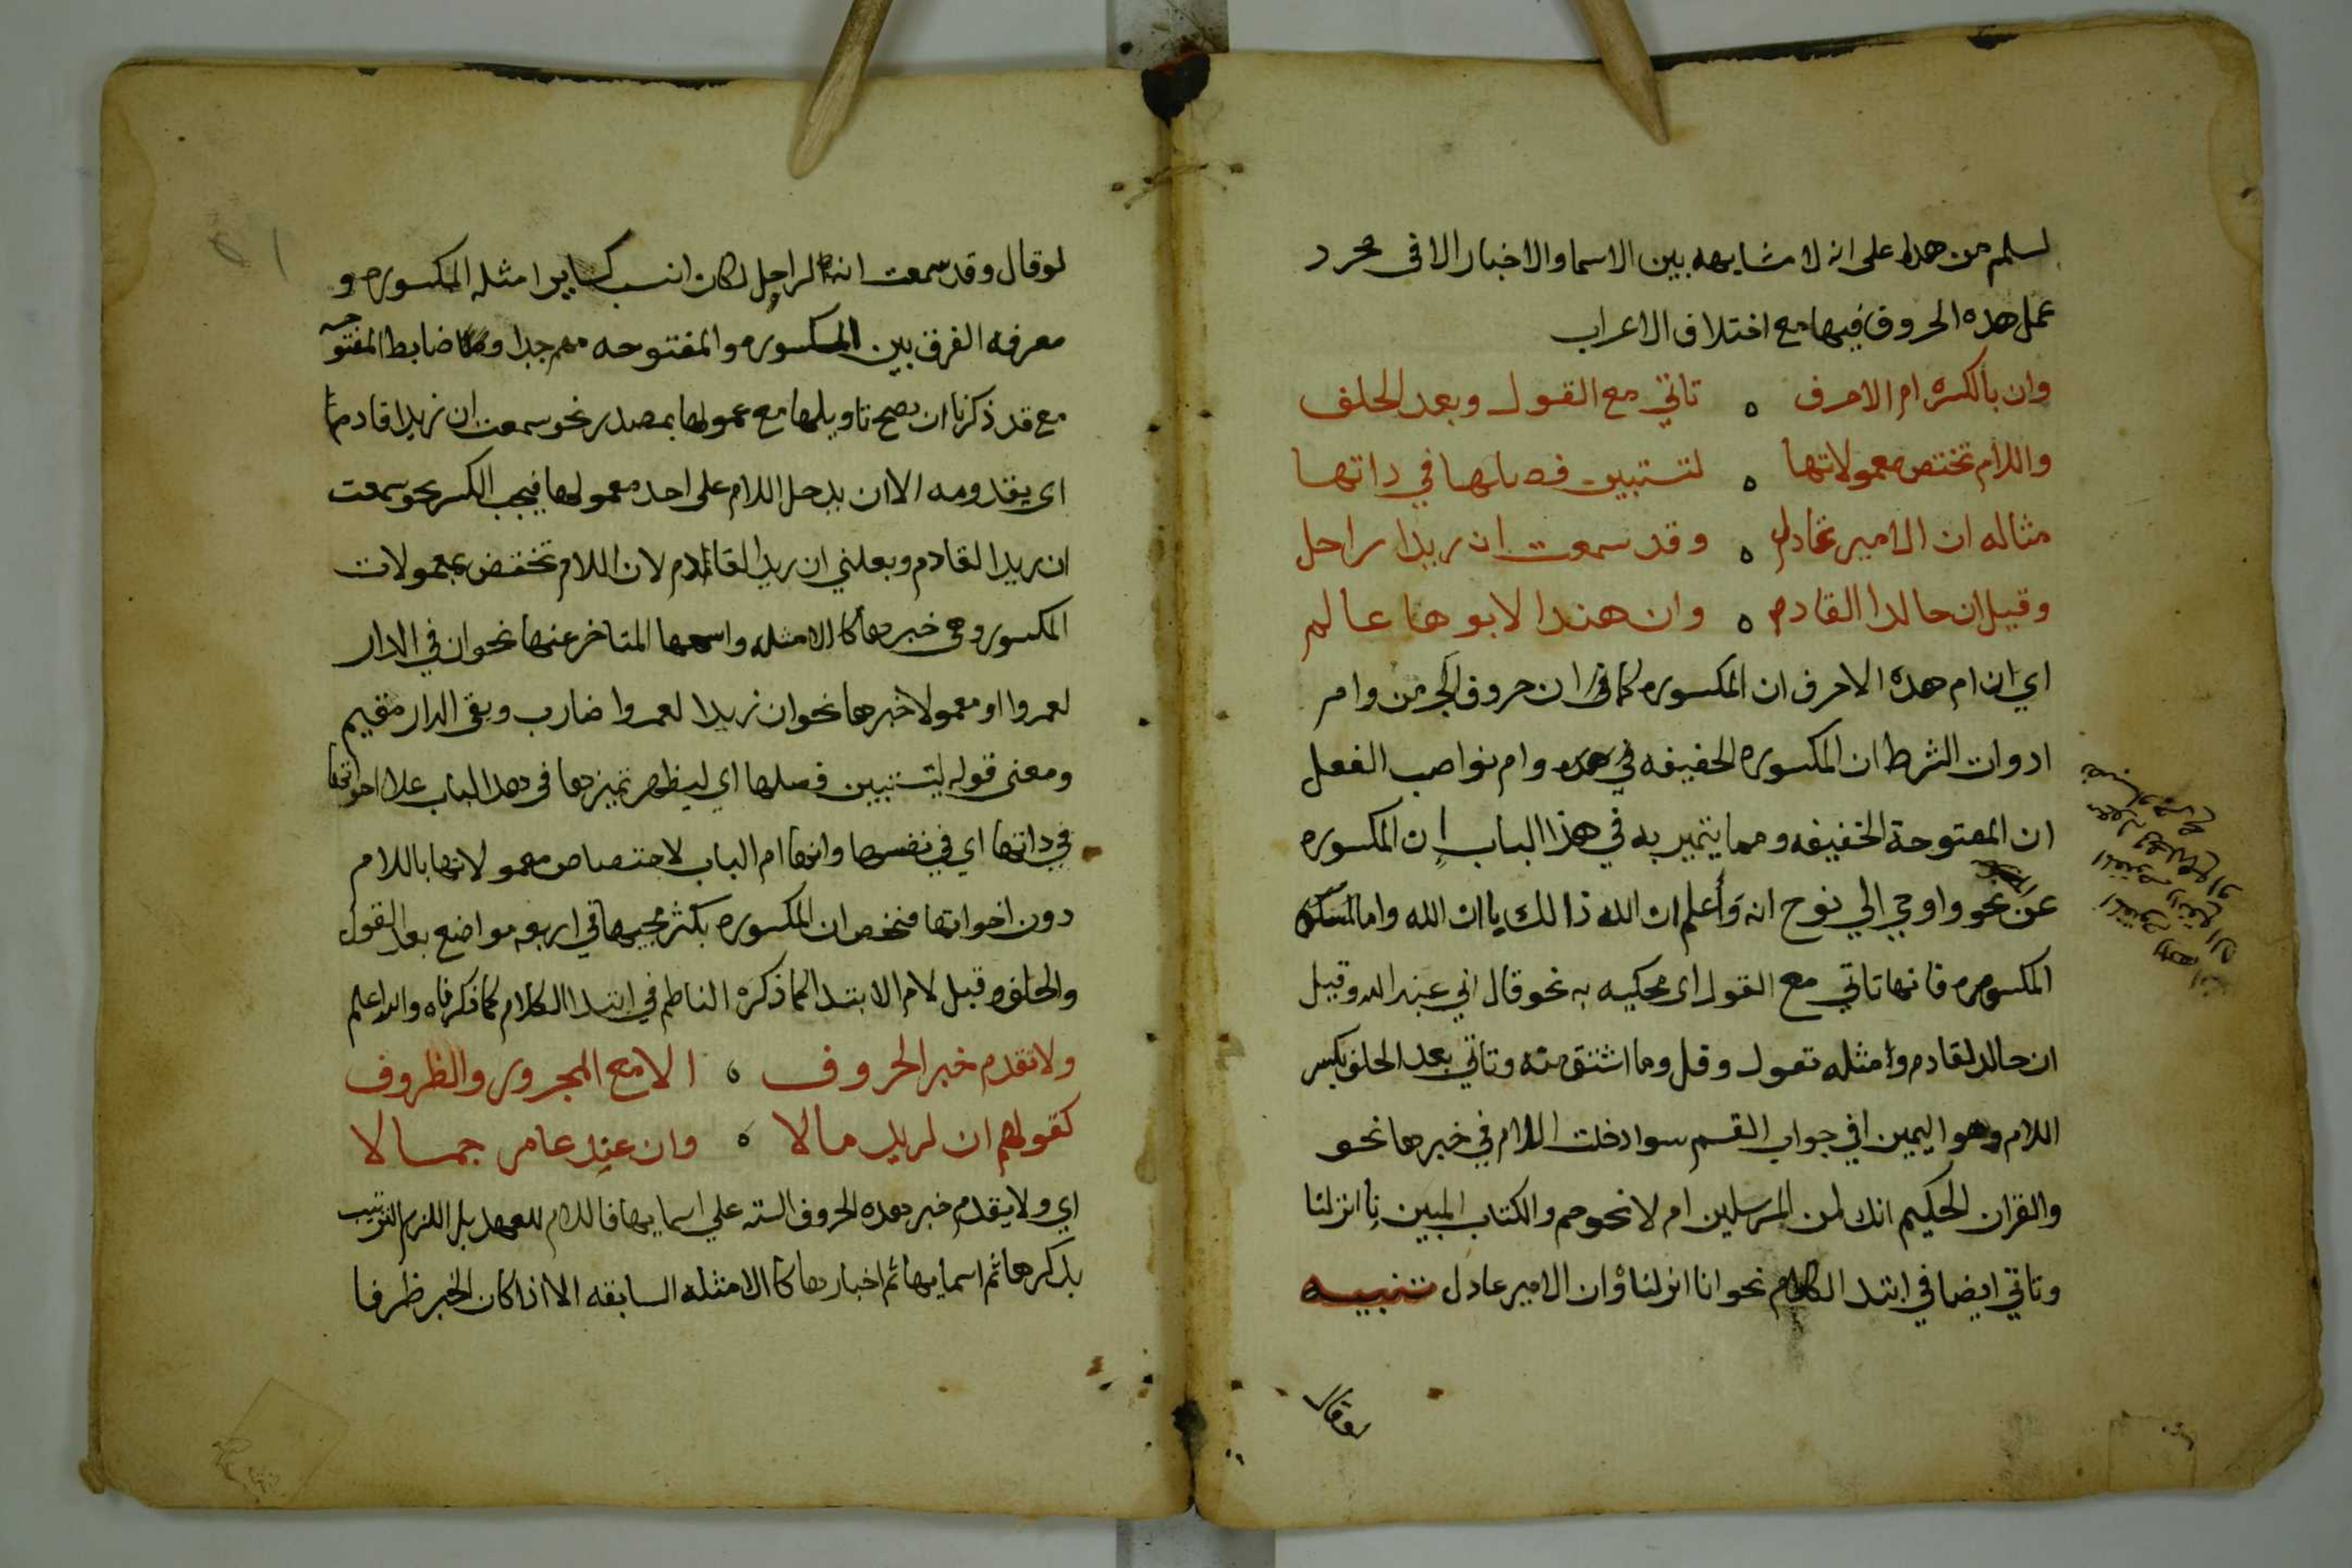 لسلم من هذا على انه لا مشابهه بين الاسما والاخبار الا في مجرد
عمل هذه الحروف فيها مع اختلاف الاعراب
وان بالكسرة ام الاحرف ه تاتي مع القول وبعد الحلف
واللام تختص معمولاتها ه لتستبين فصلها في داتها
مثاله ان الامير عادل ه وقد سمعت ان زيدا راحل
وقيل ان خالدا لقادم ه وان هندا لابوها عالم
اي ان ام هذه الاحرف ان المكسوره كما في ان حروف الجر من وام
ادوات الشرط ان المكسوره الخفيفه في هده وام نواصب الفعل
ان المفتوحة الخفيفه ومما يتميز به في هذا الباب إن المكسوره
عن نحو واوحي الي نوح انه وأعلم ان الله ذالك بان الله واما
المكسوره فانها تاتي مع القول اي محكيه به نحو قال اني عبد الله وقيل
ان خالد لقادم وامثله تقول وقل وما اشتق منه وتاتي بعد الحلف بكسر
اللام وهو اليمين اي في جواب القسم سوا دخلت اللام في خبرها نحو
والقران الحكيم انك لمن المرسلين ام لا نحو حم والكتاب المبين انا انزلنا
وتاتي ايضا في ابتدا الكلام نحو انا انزلناه وان الامير عادل تنبيه
لو قال
لو قال وقد سمعت انه لراحل لكان انسب كساير امثله المكسوره و
معرفه الفرق بين المكسوره والمفتوحه مهم جدا ضابط المفتوحه
مع قد ذكرنا ان يصح تاويلها مع معمولها بمصدر نحو سمعت ان زيدا قادم
اي بقدومه الا ان يدخل اللام على احد معمولها فيجب الكسر نحو سمعت
ان زيدا لقادم وبعلني ان زيدا لقادم لان اللام تختص بمعمولات
المكسوره وهي خبرها كالامثله واسمها المتاخر عنها نحو ان في الدار
لعمروا او معمولا خبرها نحو ان زيدا لعمروا ضارب وبقي الدار مقيم
ومعنى قوله لتستبين فصلها اي ليظهر تميزها في هدا الباب علا اخواتها
في داتها اي في نفسها وانها ام الباب لاختصاص معمولاتها باللام
دون اخواتها فتخص ان المكسوره بكثر مجيها في اربعه مواضع بعد القول
والحلف وقبل لام الابتدا كما ذكره الناظم في ابتدا الكلام كما ذكرناه والله اعلم
ولا تقدم خبر الحروف ه الا مع المجرور والظروف
كقولهم ان لزيد مالا ه وان عند عامر جمالا
اي ولا يقدم خبر هده الحروف السته علي اسمايها فاللام للعهد بل اللزم الترتيب
بذكرها ثم اسمايها ثم اخبارها كالامثله السابقه الا اذا كان الخبر ظرفا